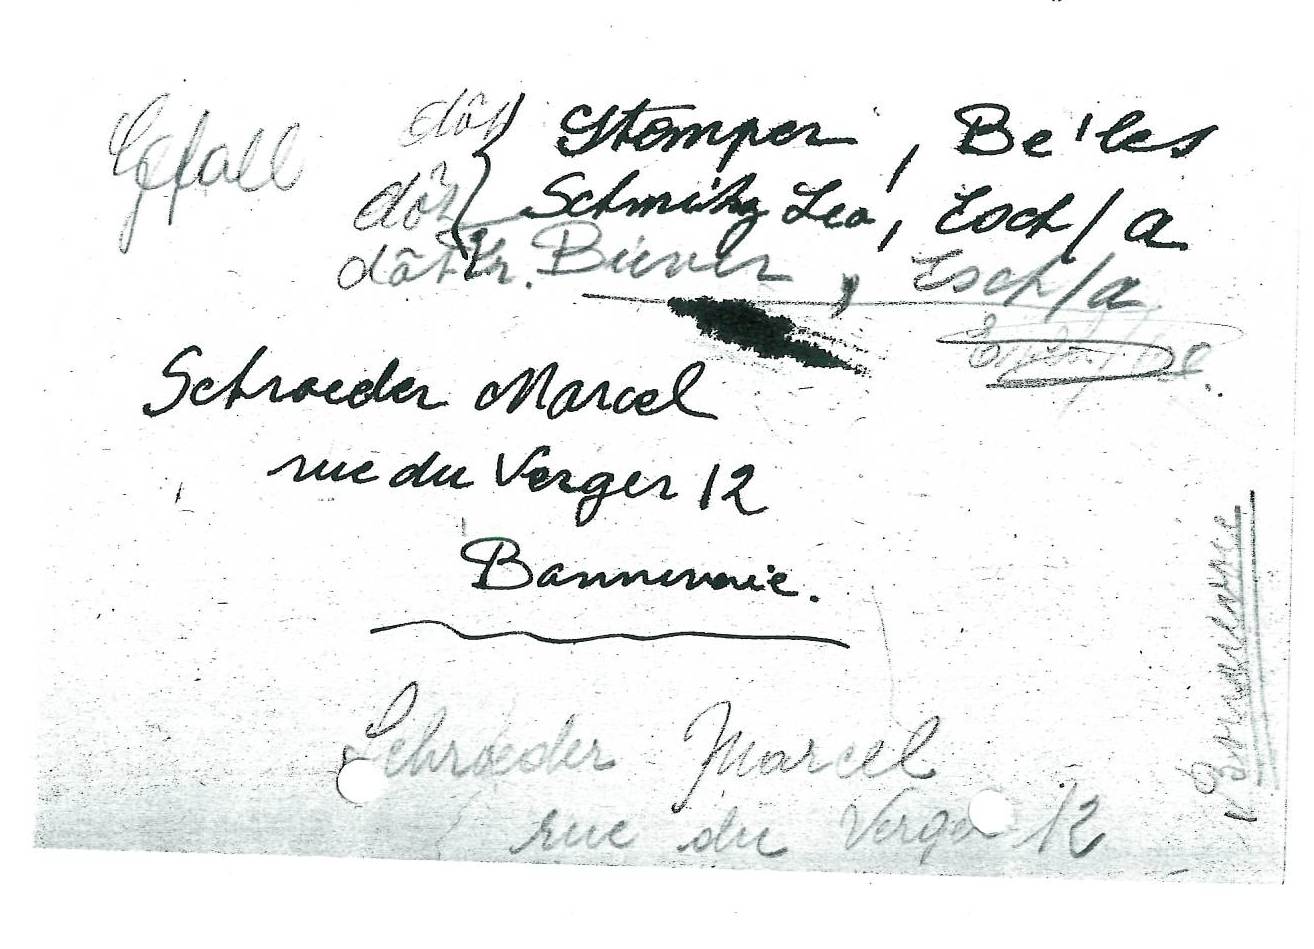 Gefall dôt Stomper, Be'les
dôt Schmitz Leo, Esch/a
dôt Dr. Biever, Esch/a
Schroeder Marcel
rue du Verger 12
Bannevoie.
Schroeder Marcel
rue du Verger 12